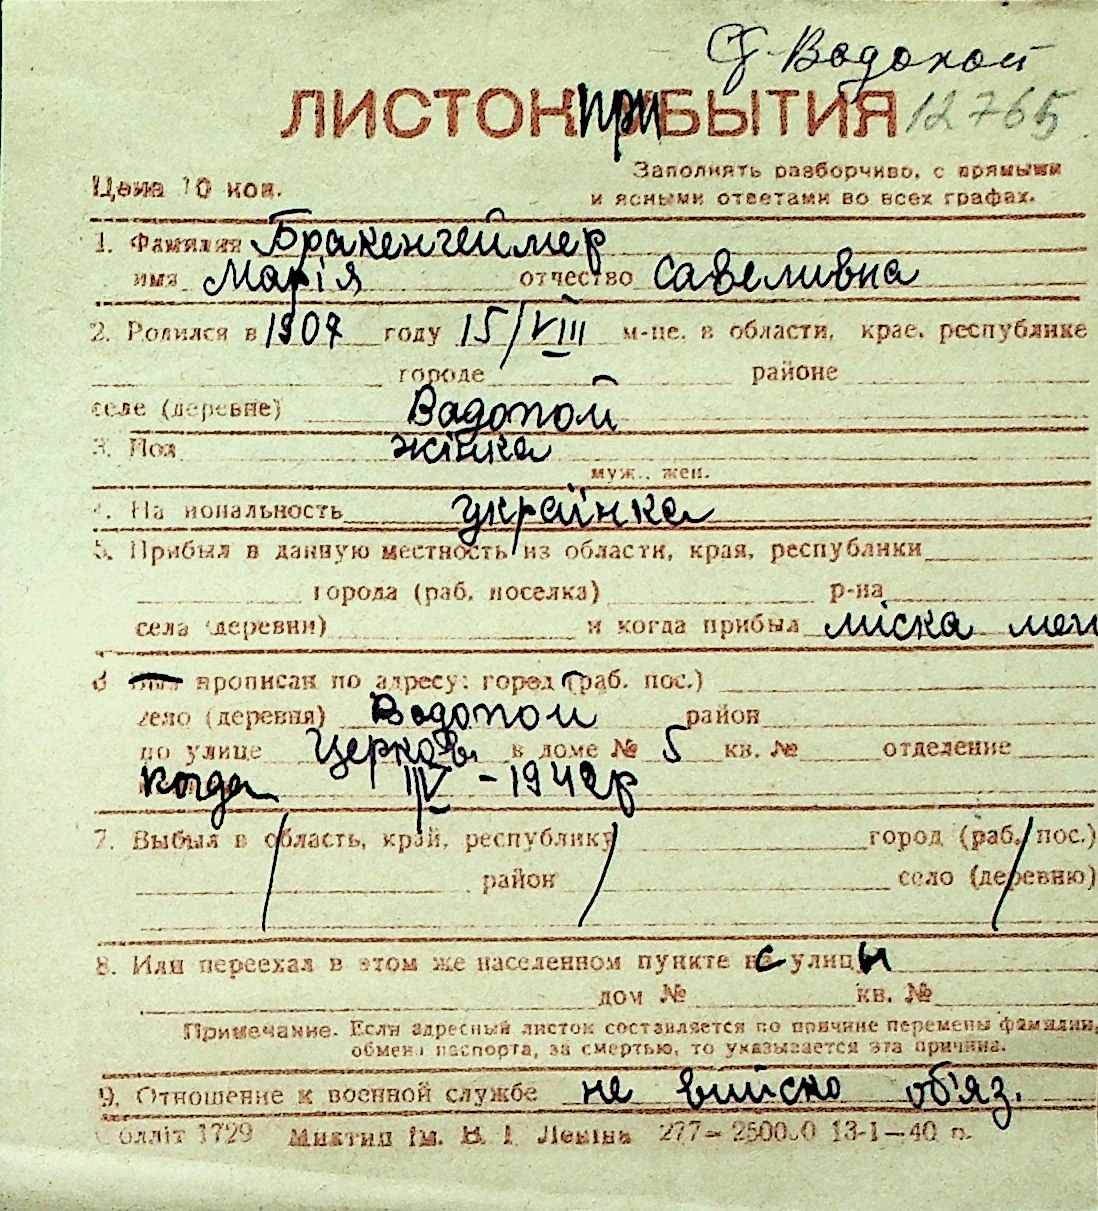 С. Водопой
ЛИСТОК ПРИБЫТИЯ 12765
Цена 10 коп.
Заполнять разборчиво, с прямыми
и ясными ответами во всех графах.
1. Фамилия Бракенгеймер
имя Марія отчество Савеливна
2. Родился в 1907 году 15/VIII м-це, в области, крае, республике
городе районе
селе (деревне) Водопой
3. Пол жінка
муж., жен.
4. Национальность українка
5. Прибыл в данную местность из области, края, республики
города (раб. поселка) р-на
села (деревни) и когда прибыл міска меш
6 прописан по адресу: город (раб. пос.)
село (деревня) Водопой район
по улице Церков в доме № 5 кв. № отделение
когда IV - 1942р
7. Выбыл в область, край, республику город (раб. пос.)
район село (деревню)
8. Или переехал в этом же населенном пункте с улицы
дом № кв. №
Примечание. Если адресный листок составляется по причине перемены фамилии,
обмена паспорта, за смертью, то указывается эта причина.
9. Отношение к военной службе не вийско об'яз.
Облліт 1729 Миктип ім. В. І. Леніна 277— 13-I—40 р.